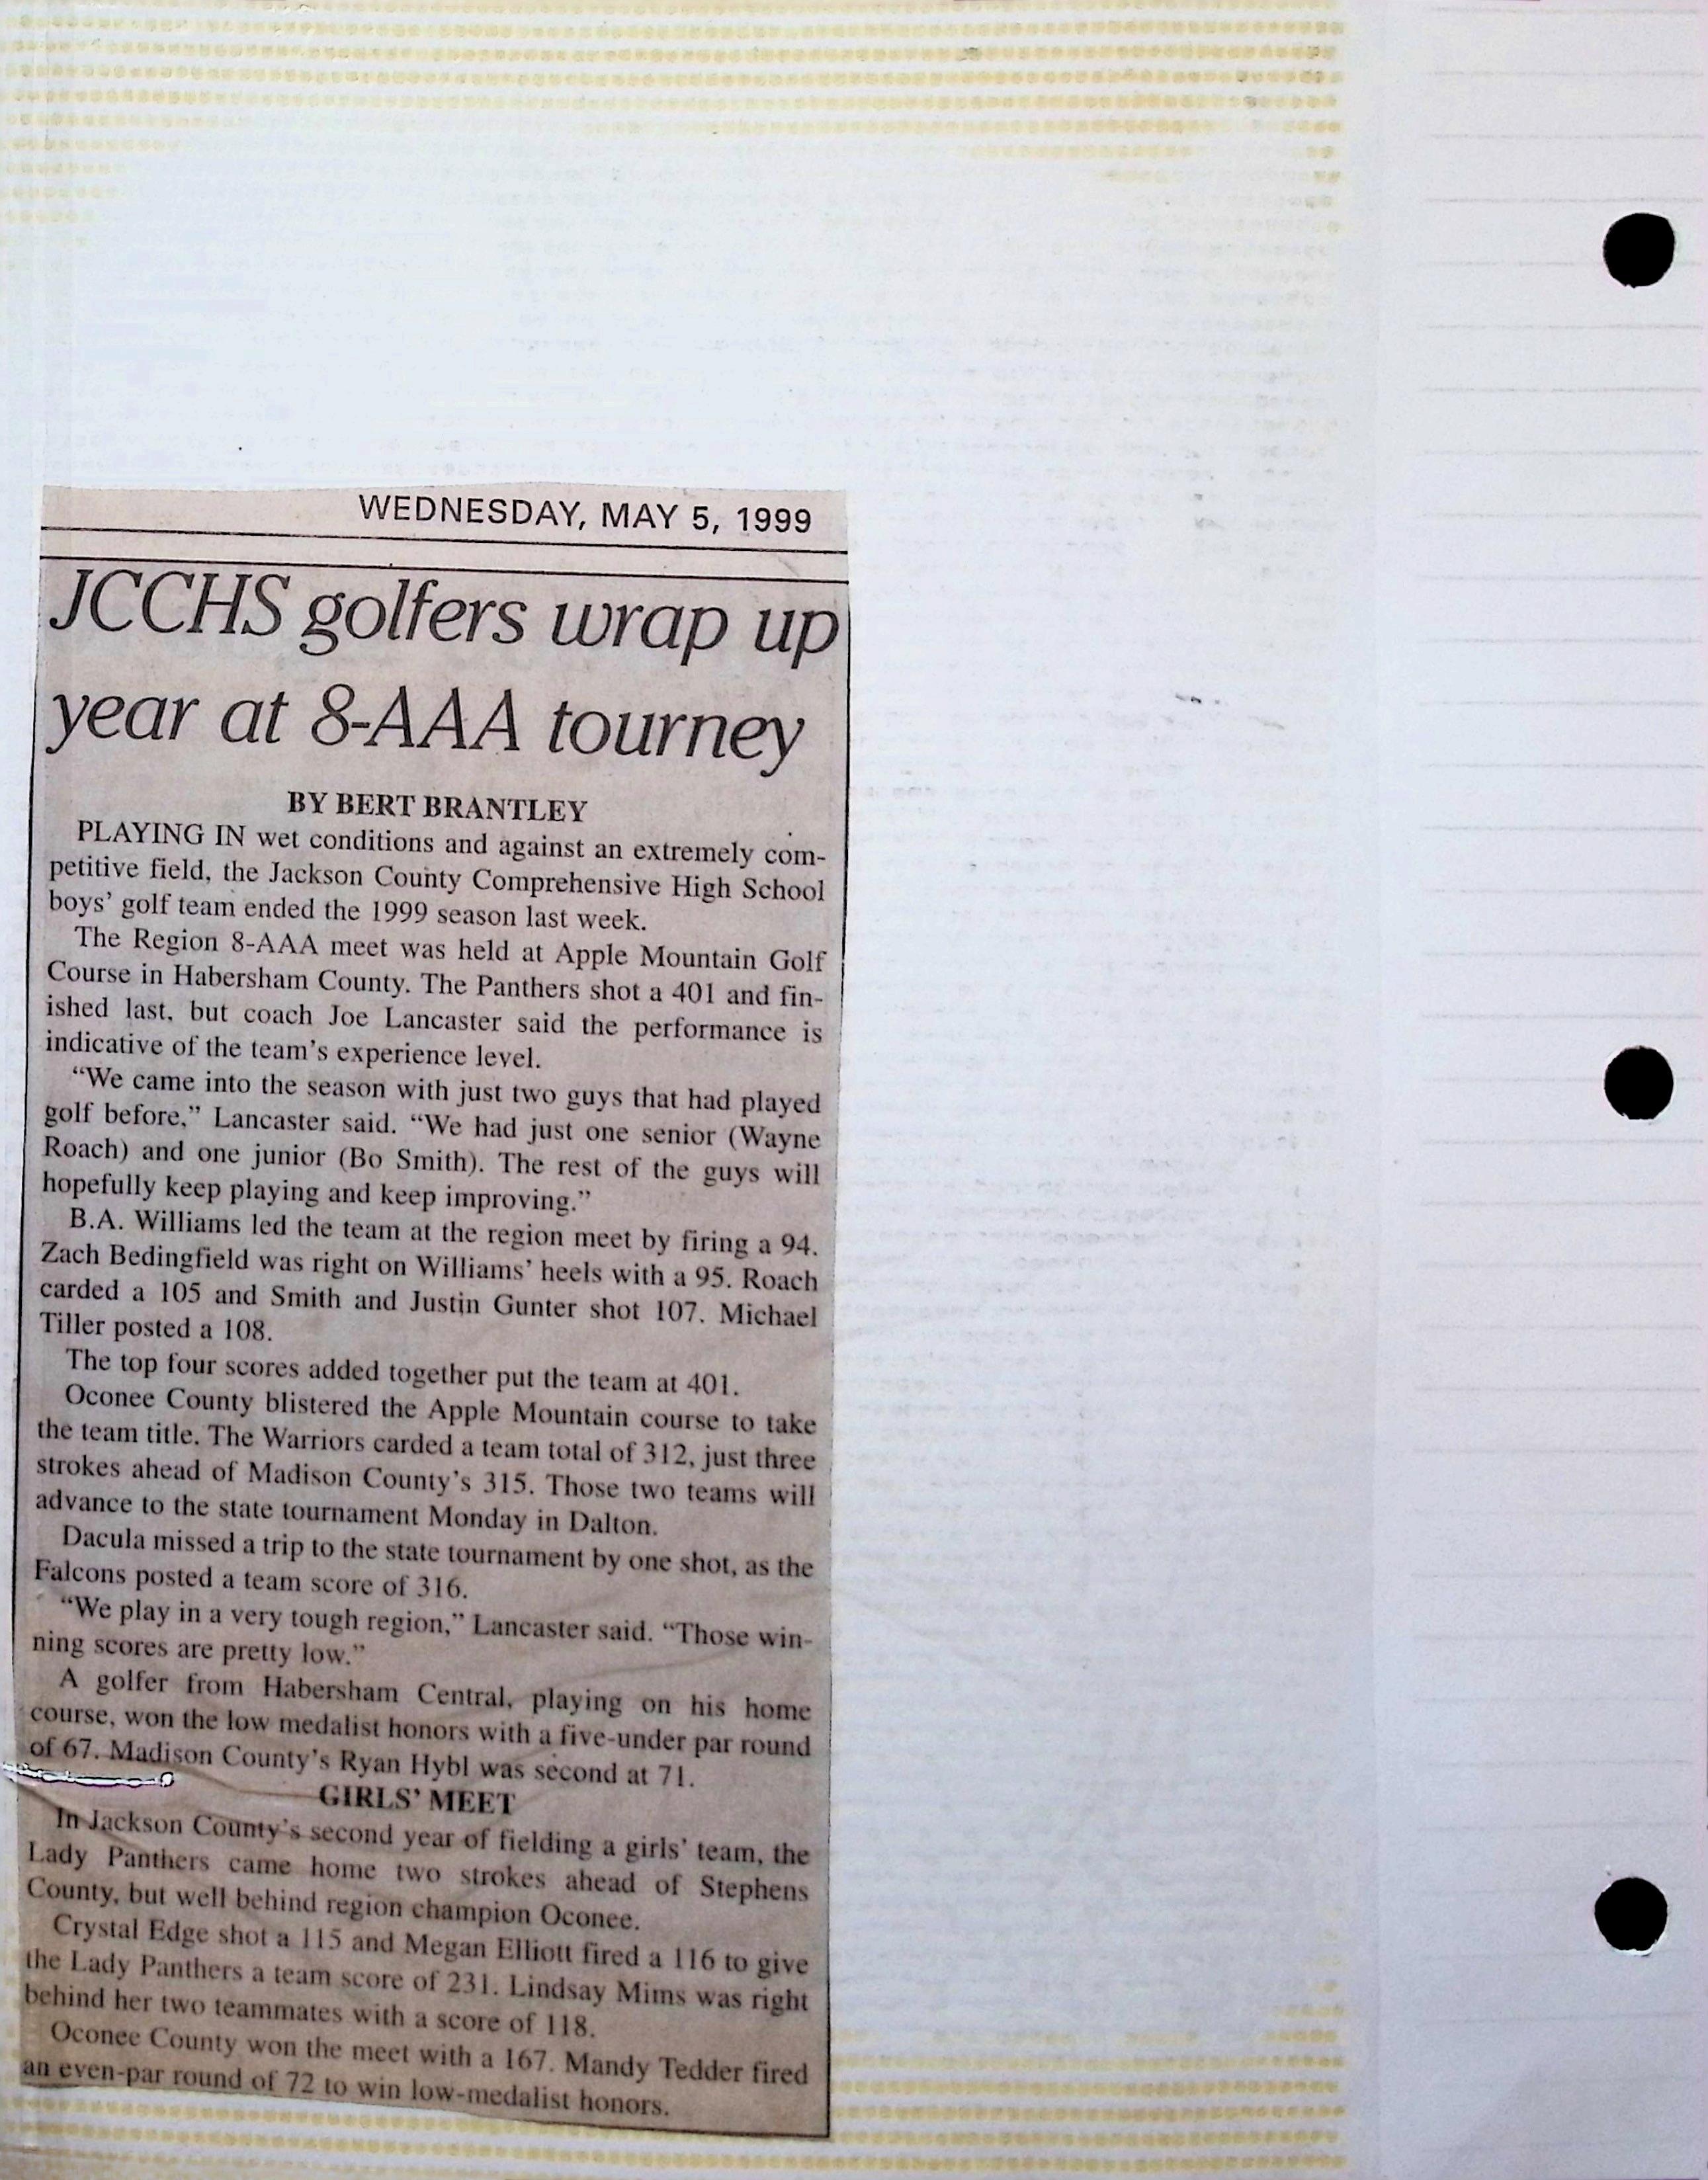 WEDNESDAY, MAY 5, 1999
JCCHS golfers wrap up
year at 8-AAA tourney
BY BERT BRANTLEY
PLAYING IN wet conditions and against an extremely com-
petitive field, the Jackson County Comprehensive High School
boys' golf team ended the 1999 season last week.
The Region 8-AAA meet was held at Apple Mountain Golf
Course in Habersham County. The Panthers shot a 401 and fin-
ished last, but coach Joe Lancaster said the performance is
indicative of the team's experience level.
“We came into the season with just two guys that had played
golf before,” Lancaster said. “We had just one senior (Wayne
Roach) and one junior (Bo Smith). The rest of the guys will
hopefully keep playing and keep improving.”
B.A. Williams led the team at the region meet by firing a 94.
Zach Bedingfield was right on Williams' heels with a 95. Roach
carded a 105 and Smith and Justin Gunter shot 107. Michael
Tiller posted a 108.
The top four scores added together put the team at 401.
Oconee County blistered the Apple Mountain course to take
the team title. The Warriors carded a team total of 312, just three
strokes ahead of Madison County's 315. Those two teams will
advance to the state tournament Monday in Dalton.
Dacula missed a trip to the state tournament by one shot, as the
Falcons posted a team score of 316.
“We play in a very tough region,” Lancaster said. “Those win-
ning scores are pretty low.”
A golfer from Habersham Central, playing on his home
course, won the low medalist honors with a five-under par round
of 67. Madison County's Ryan Hybl was second at 71.
GIRLS' MEET
In Jackson County's second year of fielding a girls' team, the
Lady Panthers came home two strokes ahead of Stephens
County, but well behind region champion Oconee.
Crystal Edge shot a 115 and Megan Elliott fired a 116 to give
the Lady Panthers a team score of 231. Lindsay Mims was right
behind her two teammates with a score of 118.
Oconee County won the meet with a 167. Mandy Tedder fired
an even-par round of 72 to win low-medalist honors.